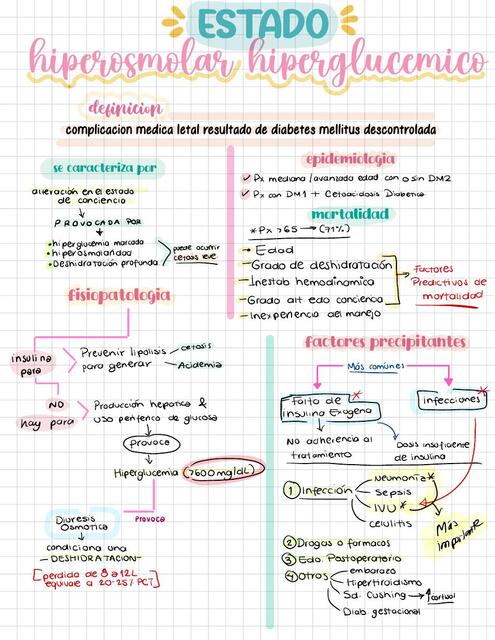 ESTADO
hiperosmolar hiperglucemico
definicion
complicacion medica letal resultado de diabetes mellitus descontrolada
se caracteriza por
alteración en el estado
de conciencia
PROVOCADA POR
• hiperglucemia marcada
• hiperosmolaridad
• Deshidratación profunda
puede ocurrir
cetosis leve
epidemiologia
Px mediana/avanzada edad con o sin DM2
Px con DM1 + Cetoacidosis Diabetica
mortalidad
*Px >65 → (71%)
- Edad
- Grado de deshidratación
- Inestab hemodinamica
- Grado alt edo conciencia
- Inexperiencia del manejo
Factores
Predictivos de
mortalidad
fisiopatologia
insulina
para
Prevenir lipolisis
para generar
cetosis
Acidemia
NO
hay para
Producción hepatica &
uso periferico de glucosa
Provoca
Hiperglucemia (>600mg/dL)
Provoca
Diuresis
Osmotica
condiciona una
- DESHIDRATACION -
[perdida de 8 a 12L
equivale a 20-25% PCT]
factores precipitantes
Más comunes
falta de
insulina Exogena
infecciones
No adherencia al
tratamiento
Dosis insuficiente
de insulina
① Infección
Neumonia*
Sepsis
IVU*
celulitis
Más
importante
② Drogas o farmacos
③ Edo. Postoperatorio
④ Otros
embarazo
Hipertiroidismo
Sd. Cushing → ↑cortisol
Diab gestacional